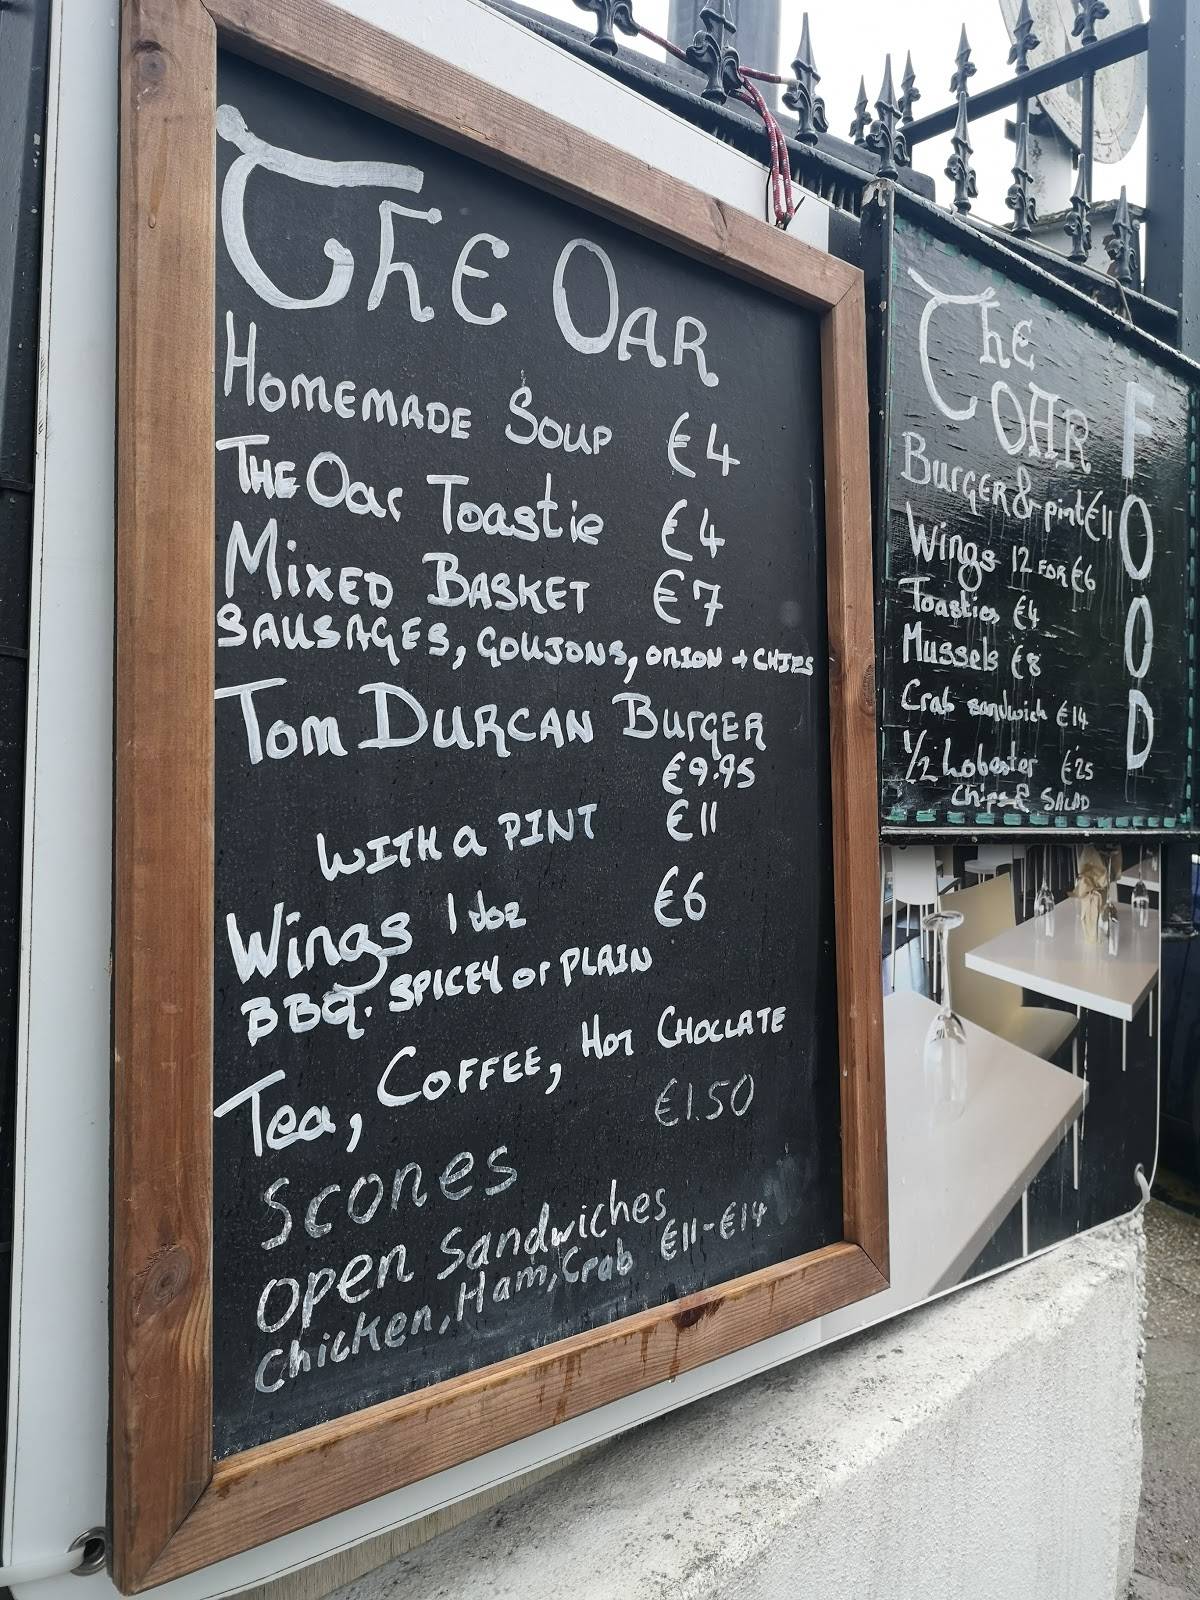 The Oar
Homemade Soup €4
The Oar Toastie €4
Mixed Basket €7
Sausages, Goujons, onion + chips
Tom Durcan Burger
€9.95
with a pint €11
Wings €6
BBQ. Spicey or Plain
Tea, Coffee, Hot Choclate
€1.50
Scones
Open Sandwiches
Chicken, Ham, Crab €11-€14
The
OAR
Burger & pint €11
Wings 12 for €6
Toasties €4
Mussels €8
Crab sandwich €14
1/2 Lobester €25
Chips & Salad
FOOD